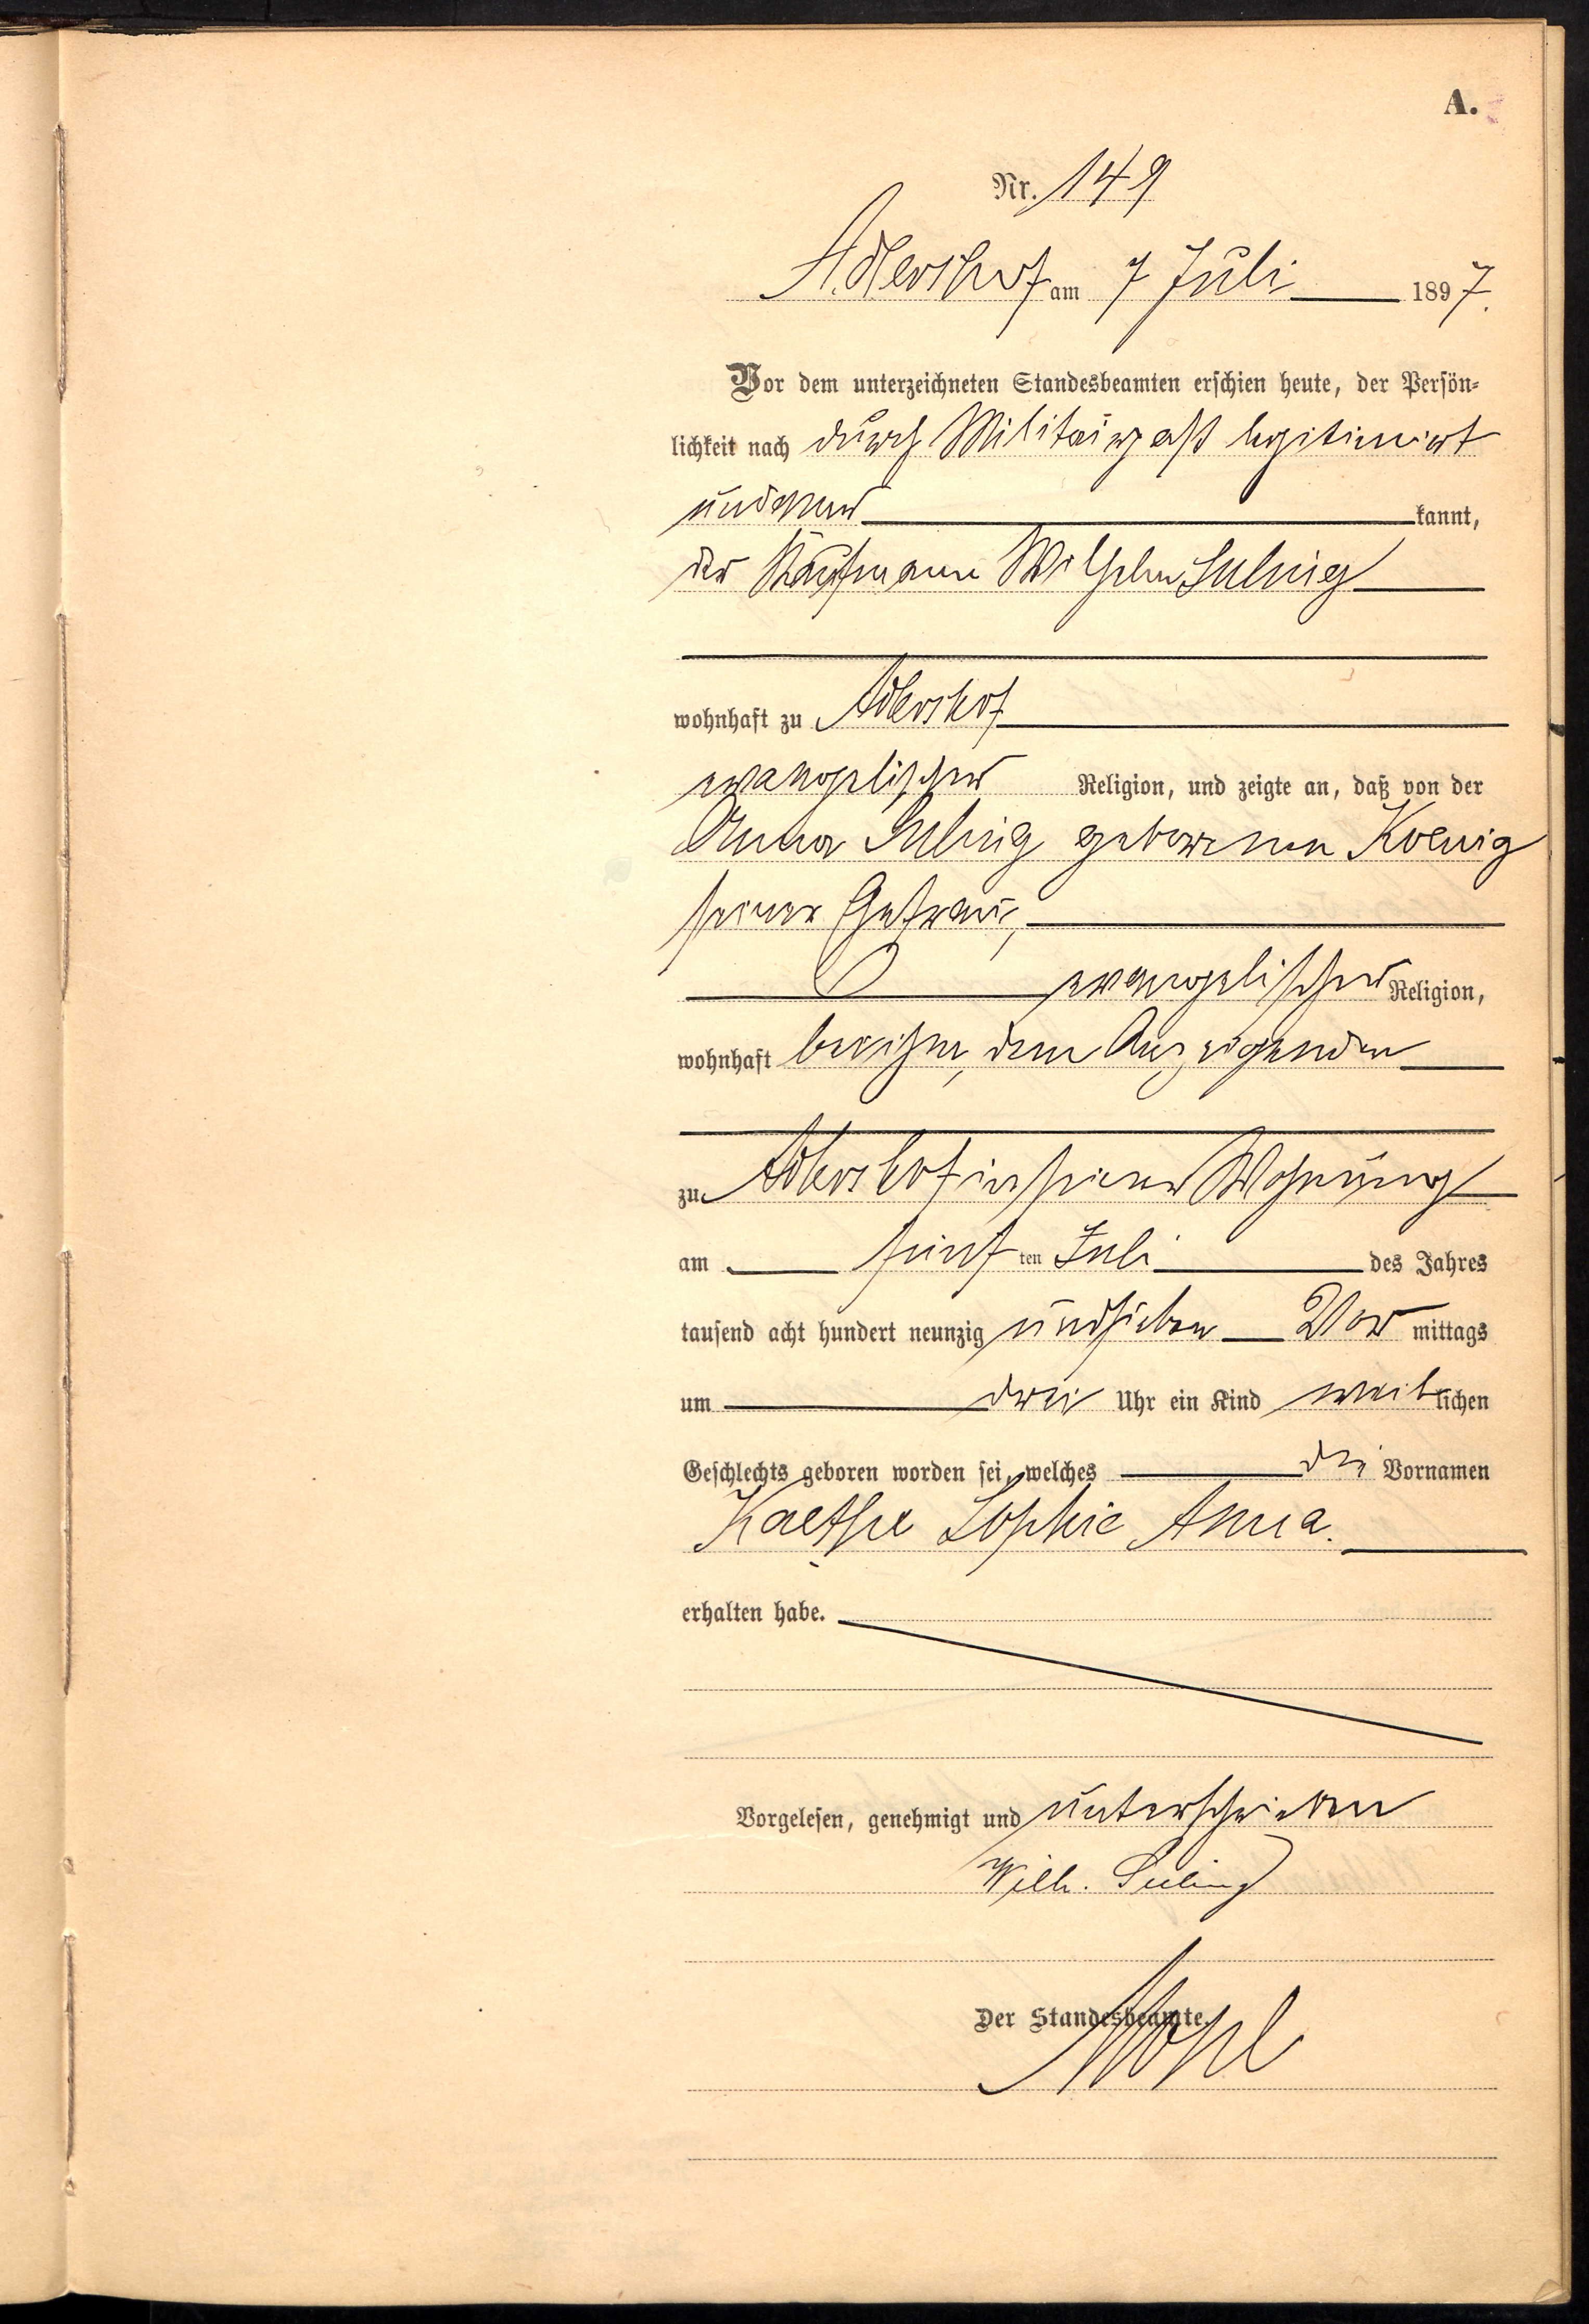 A.
Nr. 149
Adlershof am 7 Juli 1897.
Vor dem unterzeichneten Standesbeamten erschien heute, der Persön-
lichkeit nach durch Militairpaß legitimirt
und aner kannt,
der Kaufmann Wilhelm
wohnhaft zu Adlershof
evangelischer Religion, und zeigte an, daß von der
Anna geborenen Koenig
seiner Ehefrau,
evangelischer Religion,
wohnhaft bei ihm, dem Anzeigenden
zu Adlershof in seiner Wohnung
am fünf ten Juli des Jahres
tausend acht hundert neunzig und sieben Vor mittags
um drei Uhr ein Kind weib lichen
Geschlechts geboren worden sei, welches die Vornamen
Kaethe Sophie Anna.
erhalten habe.
Vorgelesen, genehmigt und unterschrieben
Wilh.
Der Standesbeamte.